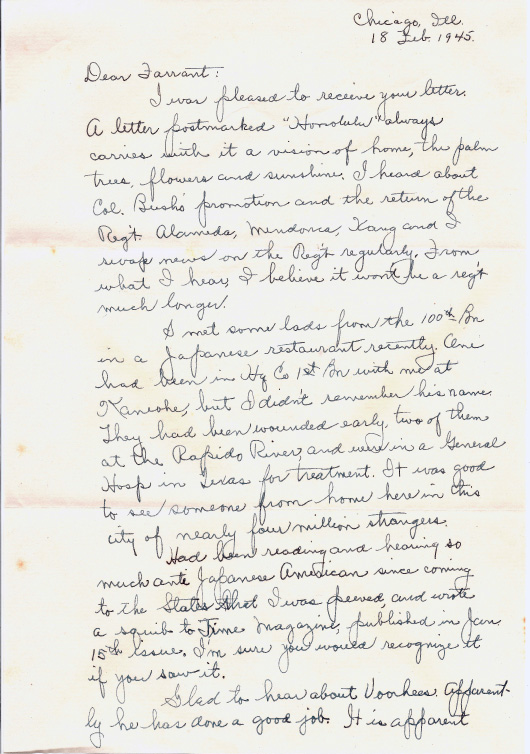 Chicago, Ill.
18 Feb. 1945.
Dear Farrant:
I was pleased to receive your letter.
A letter postmarked "Honolulu" always
carries with it a vision of home, the palm
trees, flowers and sunshine. I heard about
Col. Bush's promotion and the return of the
Reg't. Alameda, Mendonca, Kang and I
swap news on the Reg't regularly. From
what I hear, I believe it won't be a reg't
much longer.
I met some lads from the 100th Bn
in a Japanese restaurant recently. One
had been in Hq Co 1st Bn with me at
Kaneohe, but I didn't remember his name.
They had been wounded early, two of them
at the Rapido River, and were in a General
Hosp in Texas for treatment. It was good
to see someone from home here in this
city of nearly four million strangers.
Had been reading and hearing so
much ante Japanese American since coming
to the States that I was peeved, and wrote
a squib to Time Magazine, published in Jan.
15th issue. I'm sure you would recognize it
if you saw it.
Glad to hear about Voorhees. Apparent-
ly he has done a good job. It is apparent